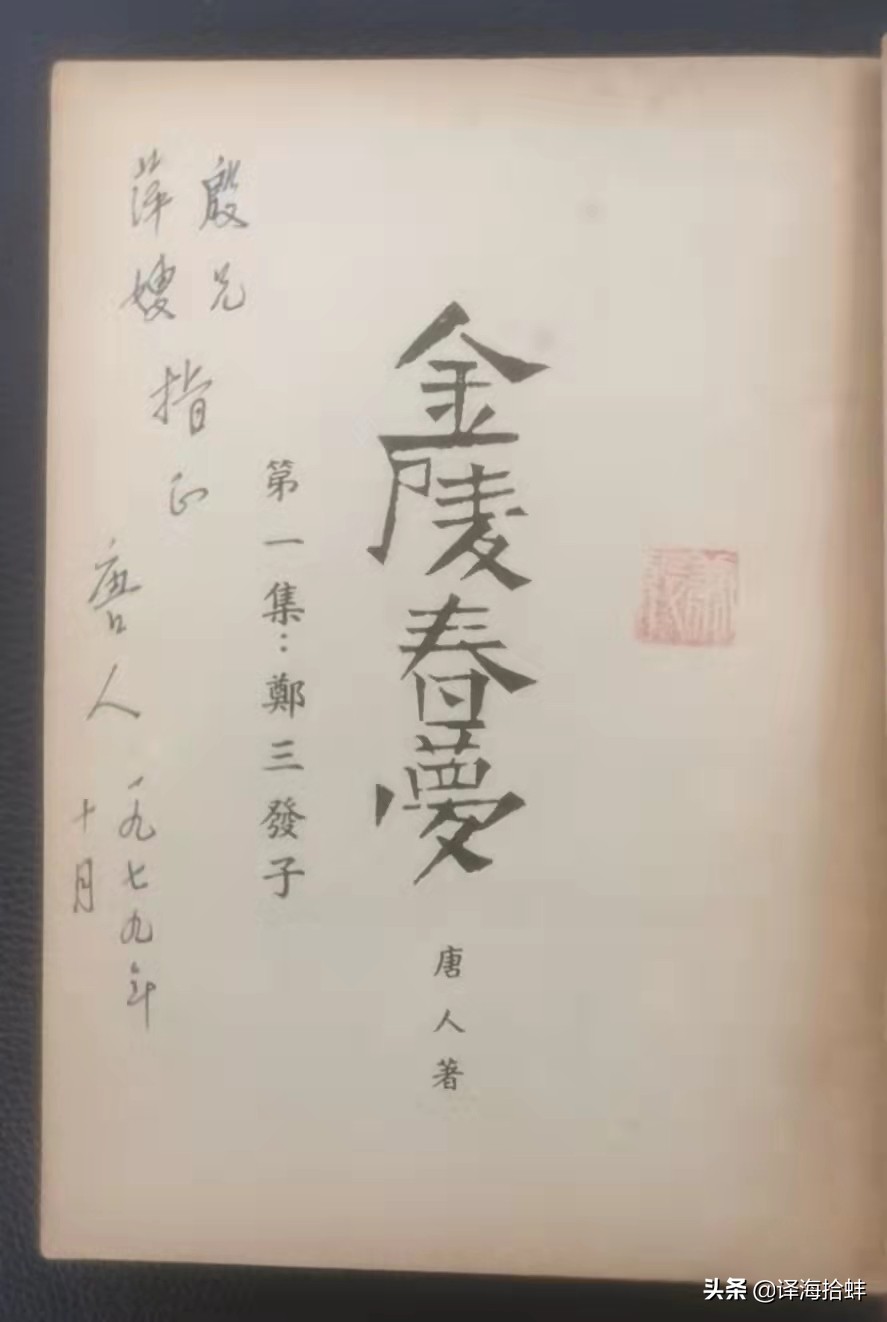 金陵春夢
唐人著
第一集：鄭三發子
殷兄
萍嫂
指正
唐人
一九七九年
十月
头条 @译海拾蚌